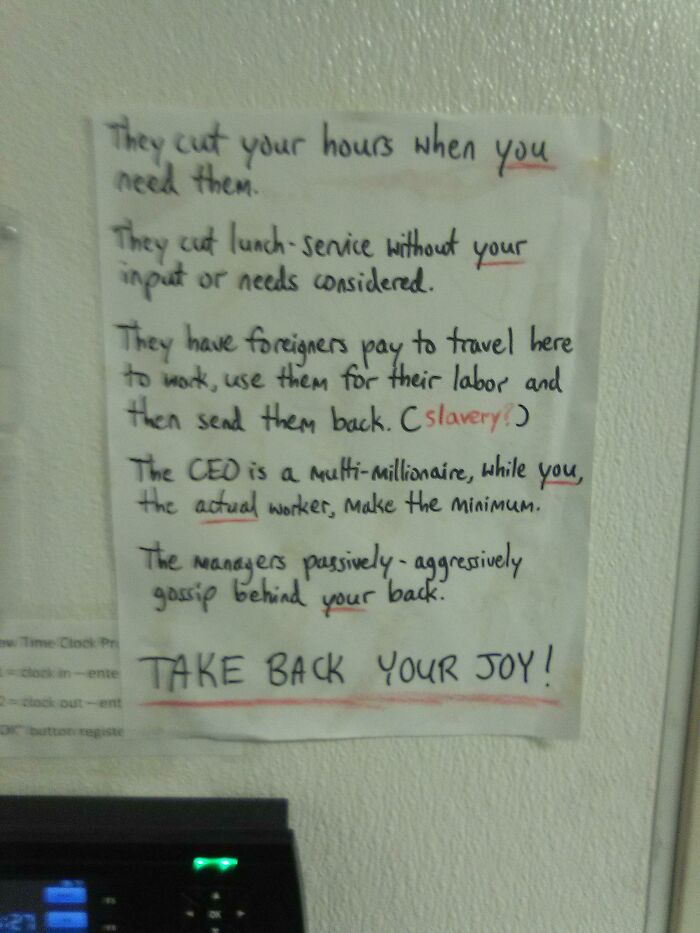 They cut your hours when you
need them.
They cut lunch-service without your
input or needs considered.
They have foreigners pay to travel here
to work, use them for their labor and
then send them back. (slavery?)
The CEO is a multi-millionaire, while you,
the actual worker, make the minimum.
The managers passively-aggressively
gossip behind your back.
TAKE BACK YOUR JOY!
ew Time Clock Pr
1 = clock in - ente
2 = clock out - ent
OK" button registe
:27
OK